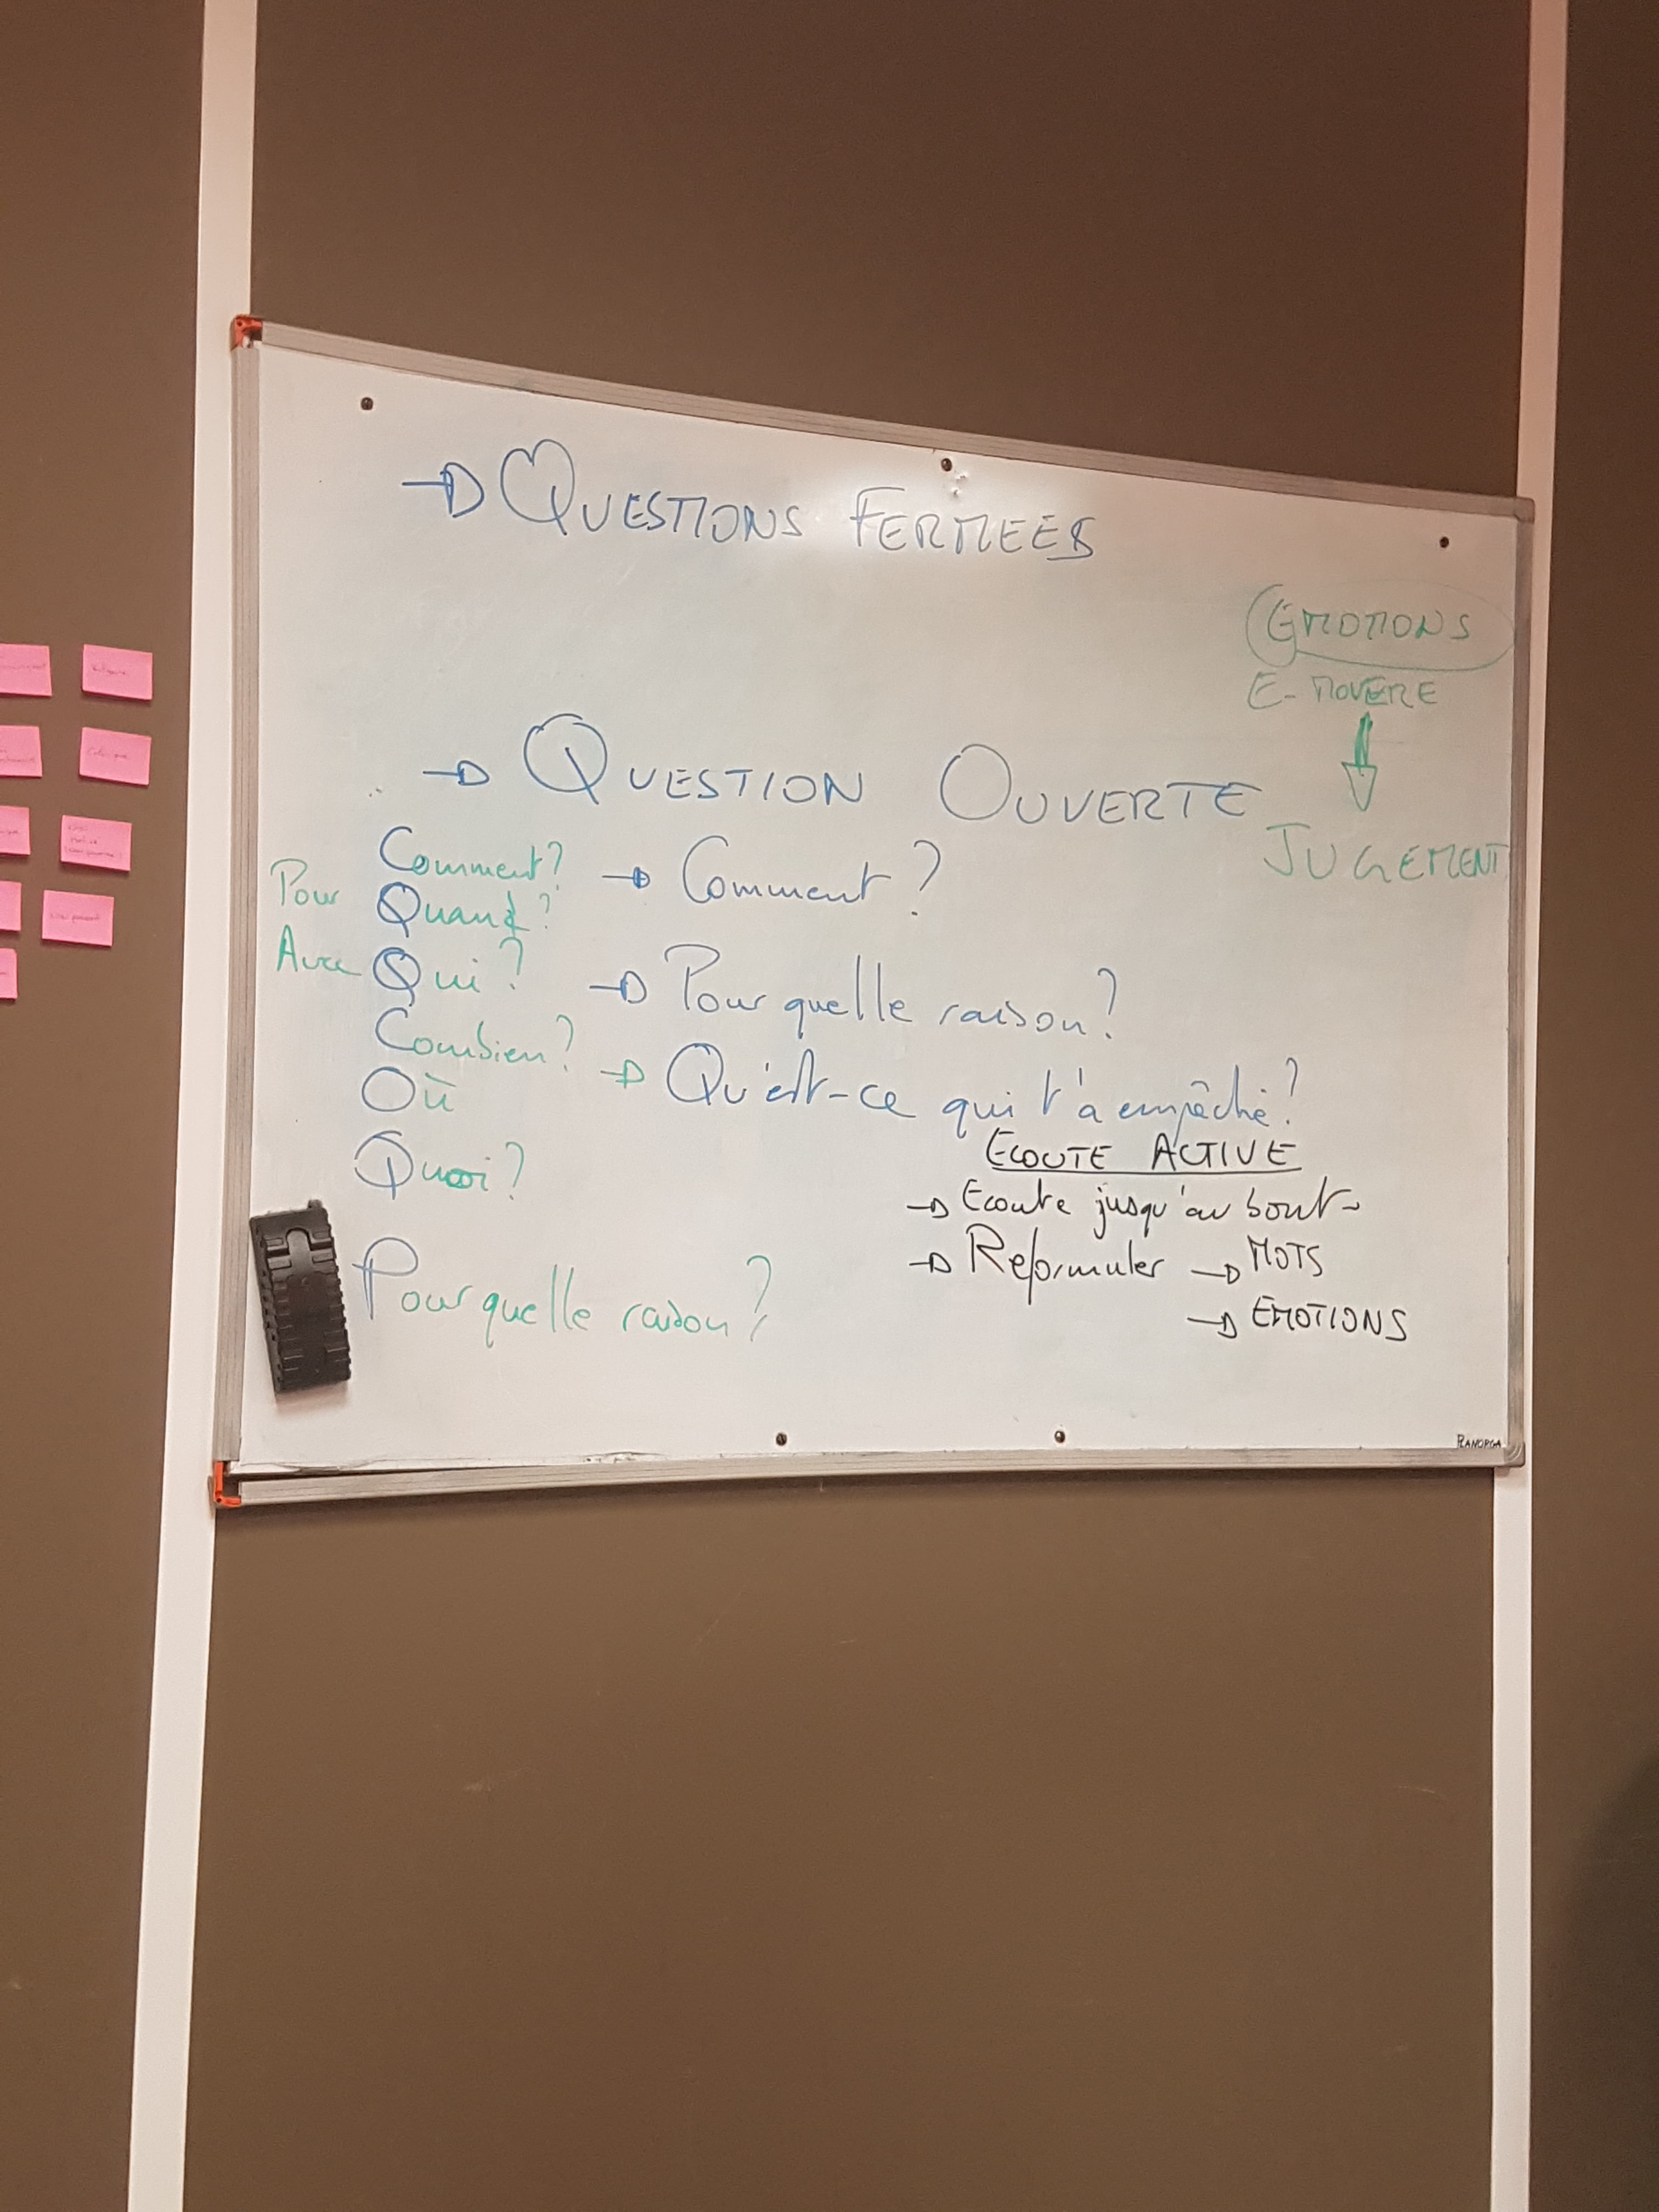 → QUESTIONS FERMEES
EMOTIONS
E-MOVERE
→ QUESTION OUVERTE
JUGEMENT
Comment?
Pour Quand?
Avec Qui?
Combien?
Où
Quoi?
Pour quelle raison?
→ Comment?
→ Pour quelle raison?
→ Qu'est-ce qui t'a empêché?
ECOUTE ACTIVE
→ Ecoute jusqu'au bout
→ Reformuler → MOTS
→ EMOTIONS
PLANORGA